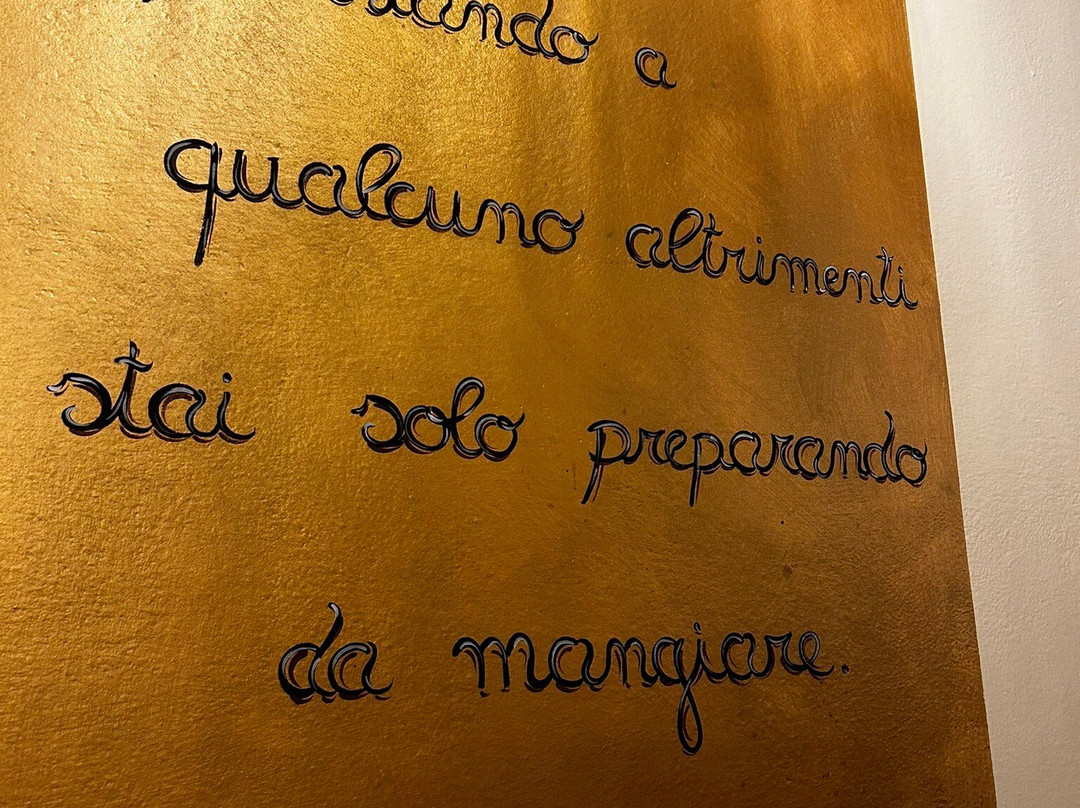 a
qualcuno altrimenti
stai solo preparando
da mangiare.